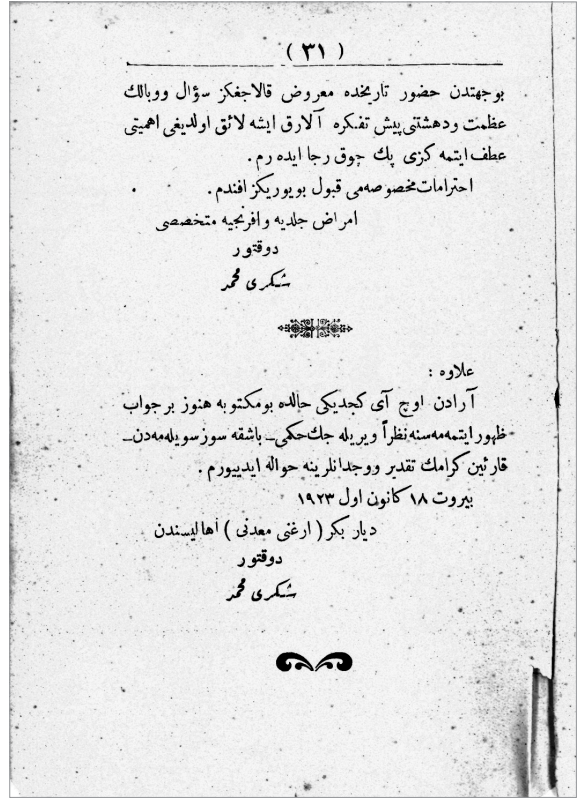 ( ٣١ )
بوجهتدن حضور تاريخده معروض قالاجغكز سؤال ووبالك
عظمت ودهشتنى پيش تفكره آلارق ايشه لائق اولديغى اهميتى
عطف ايتمه كزى پك چوق رجا ايده رم .
احترامات مخصوصه مى قبول بويوريكز افندم .
امراض جلديه وافرنجيه متخصصى
دوقتور
شكرى محمد
علاوه :
آرادن اوچ آى كجديكى حالده بومكتوبه هنوز برجواب
ظهور ايتمه مه سنه نظراً ويريله جك حكمى ــ باشقه سوز سويله مه دن ــ
قارئين كرامك تقدير ووجدانلرينه حواله ايدييورم .
بيروت ١٨ كانون اول ١٩٢٣
ديار بكر ( ارغنى معدنى ) اهاليسندن
دوقتور
شكرى محمد